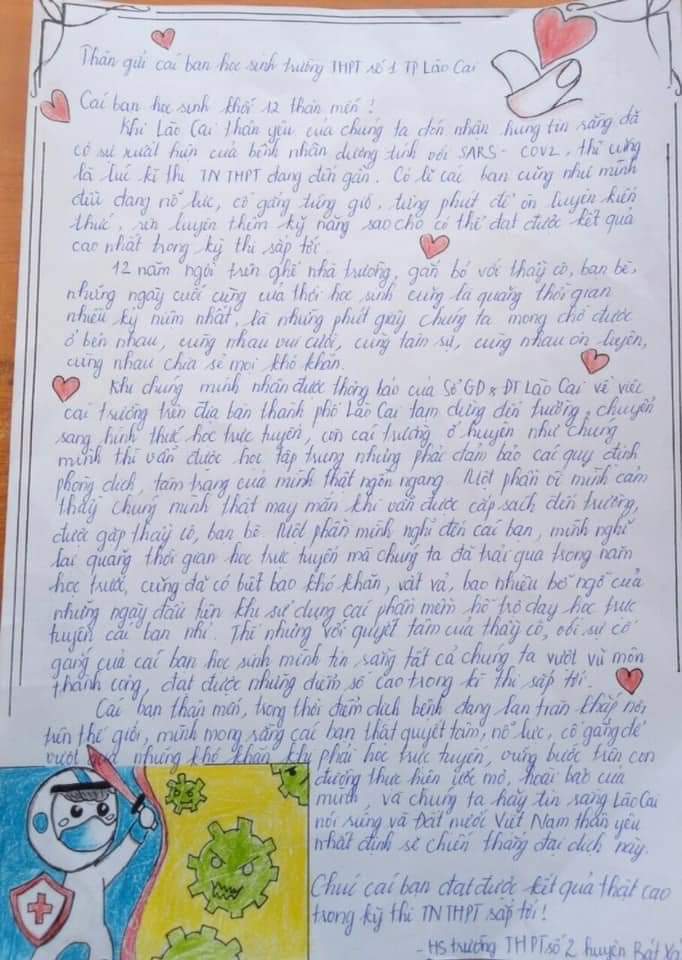 Thân gửi các bạn học sinh trường THPT số 1 TP Lào Cai
Các bạn học sinh khối 12 thân mến !
Khi Lào Cai thân yêu của chúng ta đón nhận hung tin rằng đã
có sự xuất hiện của bệnh nhân dương tính với SARS - COV2, thì cũng
là lúc kì thi TN THPT đang đến gần. Có lẽ các bạn cũng như mình
đều đang nỗ lực, cố gắng từng giờ, từng phút để ôn luyện kiến
thức, rèn luyện thêm kỹ năng sao cho có thể đạt được kết quả
cao nhất trong kỳ thi sắp tới.
12 năm ngồi trên ghế nhà trường, gắn bó với thầy cô, bạn bè,
những ngày cuối cùng của thời học sinh cũng là quãng thời gian
nhiều kỷ niệm nhất, là những phút giây chúng ta mong chờ được
ở bên nhau, cùng nhau vui cười, cùng tâm sự, cùng nhau ôn luyện,
cùng nhau chia sẻ mọi khó khăn.
Khi chúng mình nhận được thông báo của Sở GD & ĐT Lào Cai về việc
các trường trên địa bàn thành phố Lào Cai tạm dừng đến trường, chuyển
sang hình thức học trực tuyến, còn các trường ở huyện như chúng
mình thì vẫn được học tập trung nhưng phải đảm bảo các quy định
phòng dịch, tâm trạng của mình thật ngổn ngang. Một phần vì mình cảm
thấy chúng mình thật may mắn khi vẫn được cắp sách đến trường,
được gặp thầy cô, bạn bè. Một phần mình nghĩ đến các bạn, mình nghĩ
lại quãng thời gian học trực tuyến mà chúng ta đã trải qua trong năm
học trước, cũng đã có biết bao khó khăn, vất vả, bao nhiêu bỡ ngỡ của
những ngày đầu tiên khi sử dụng các phần mềm hỗ trợ dạy học trực
tuyến các bạn nhỉ. Thế nhưng với quyết tâm của thầy cô, với sự cố
gắng của các bạn học sinh mình tin rằng tất cả chúng ta vượt vũ môn
thành công, đạt được những điểm số cao trong kì thi sắp tới.
Các bạn thân mến, trong thời điểm dịch bệnh đang lan tràn khắp nơi
trên thế giới, mình mong rằng các bạn thật quyết tâm, nỗ lực, cố gắng để
vượt qua những khó khăn khi phải học trực tuyến, vững bước trên con
đường thực hiện ước mơ, hoài bão của
mình, và chúng ta hãy tin rằng Lào Cai
nói riêng và Đất nước Việt Nam thân yêu
nhất định sẽ chiến thắng đại dịch này.
Chúc các bạn đạt được kết quả thật cao
trong kỳ thi TN THPT sắp tới!
- HS trường THPT số 2 huyện Bát Xát